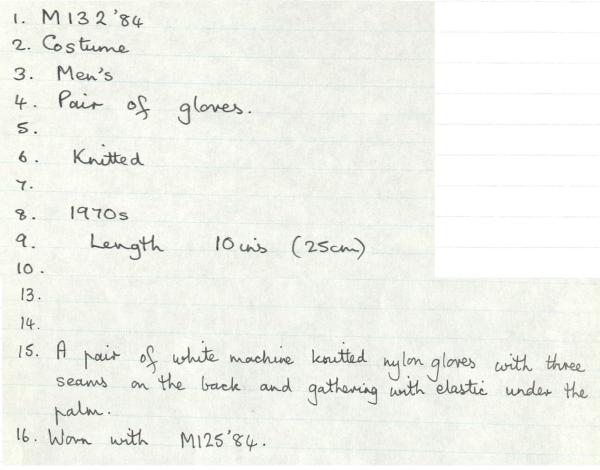 1. M132'84
2. Costume
3. Men's
4. Pair of gloves.
5.
6. Knitted
7.
8. 1970s
9. Length 10 ins (25cm)
10.
13.
14.
15. A pair of white machine knitted nylon gloves with three
seams on the back and gathering with elastic under the
palm.
16. Worn with M125'84.